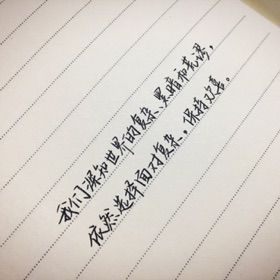 我们深知世界的复杂、黑暗和荒谬，
依然选择面对复杂，保持欢喜。